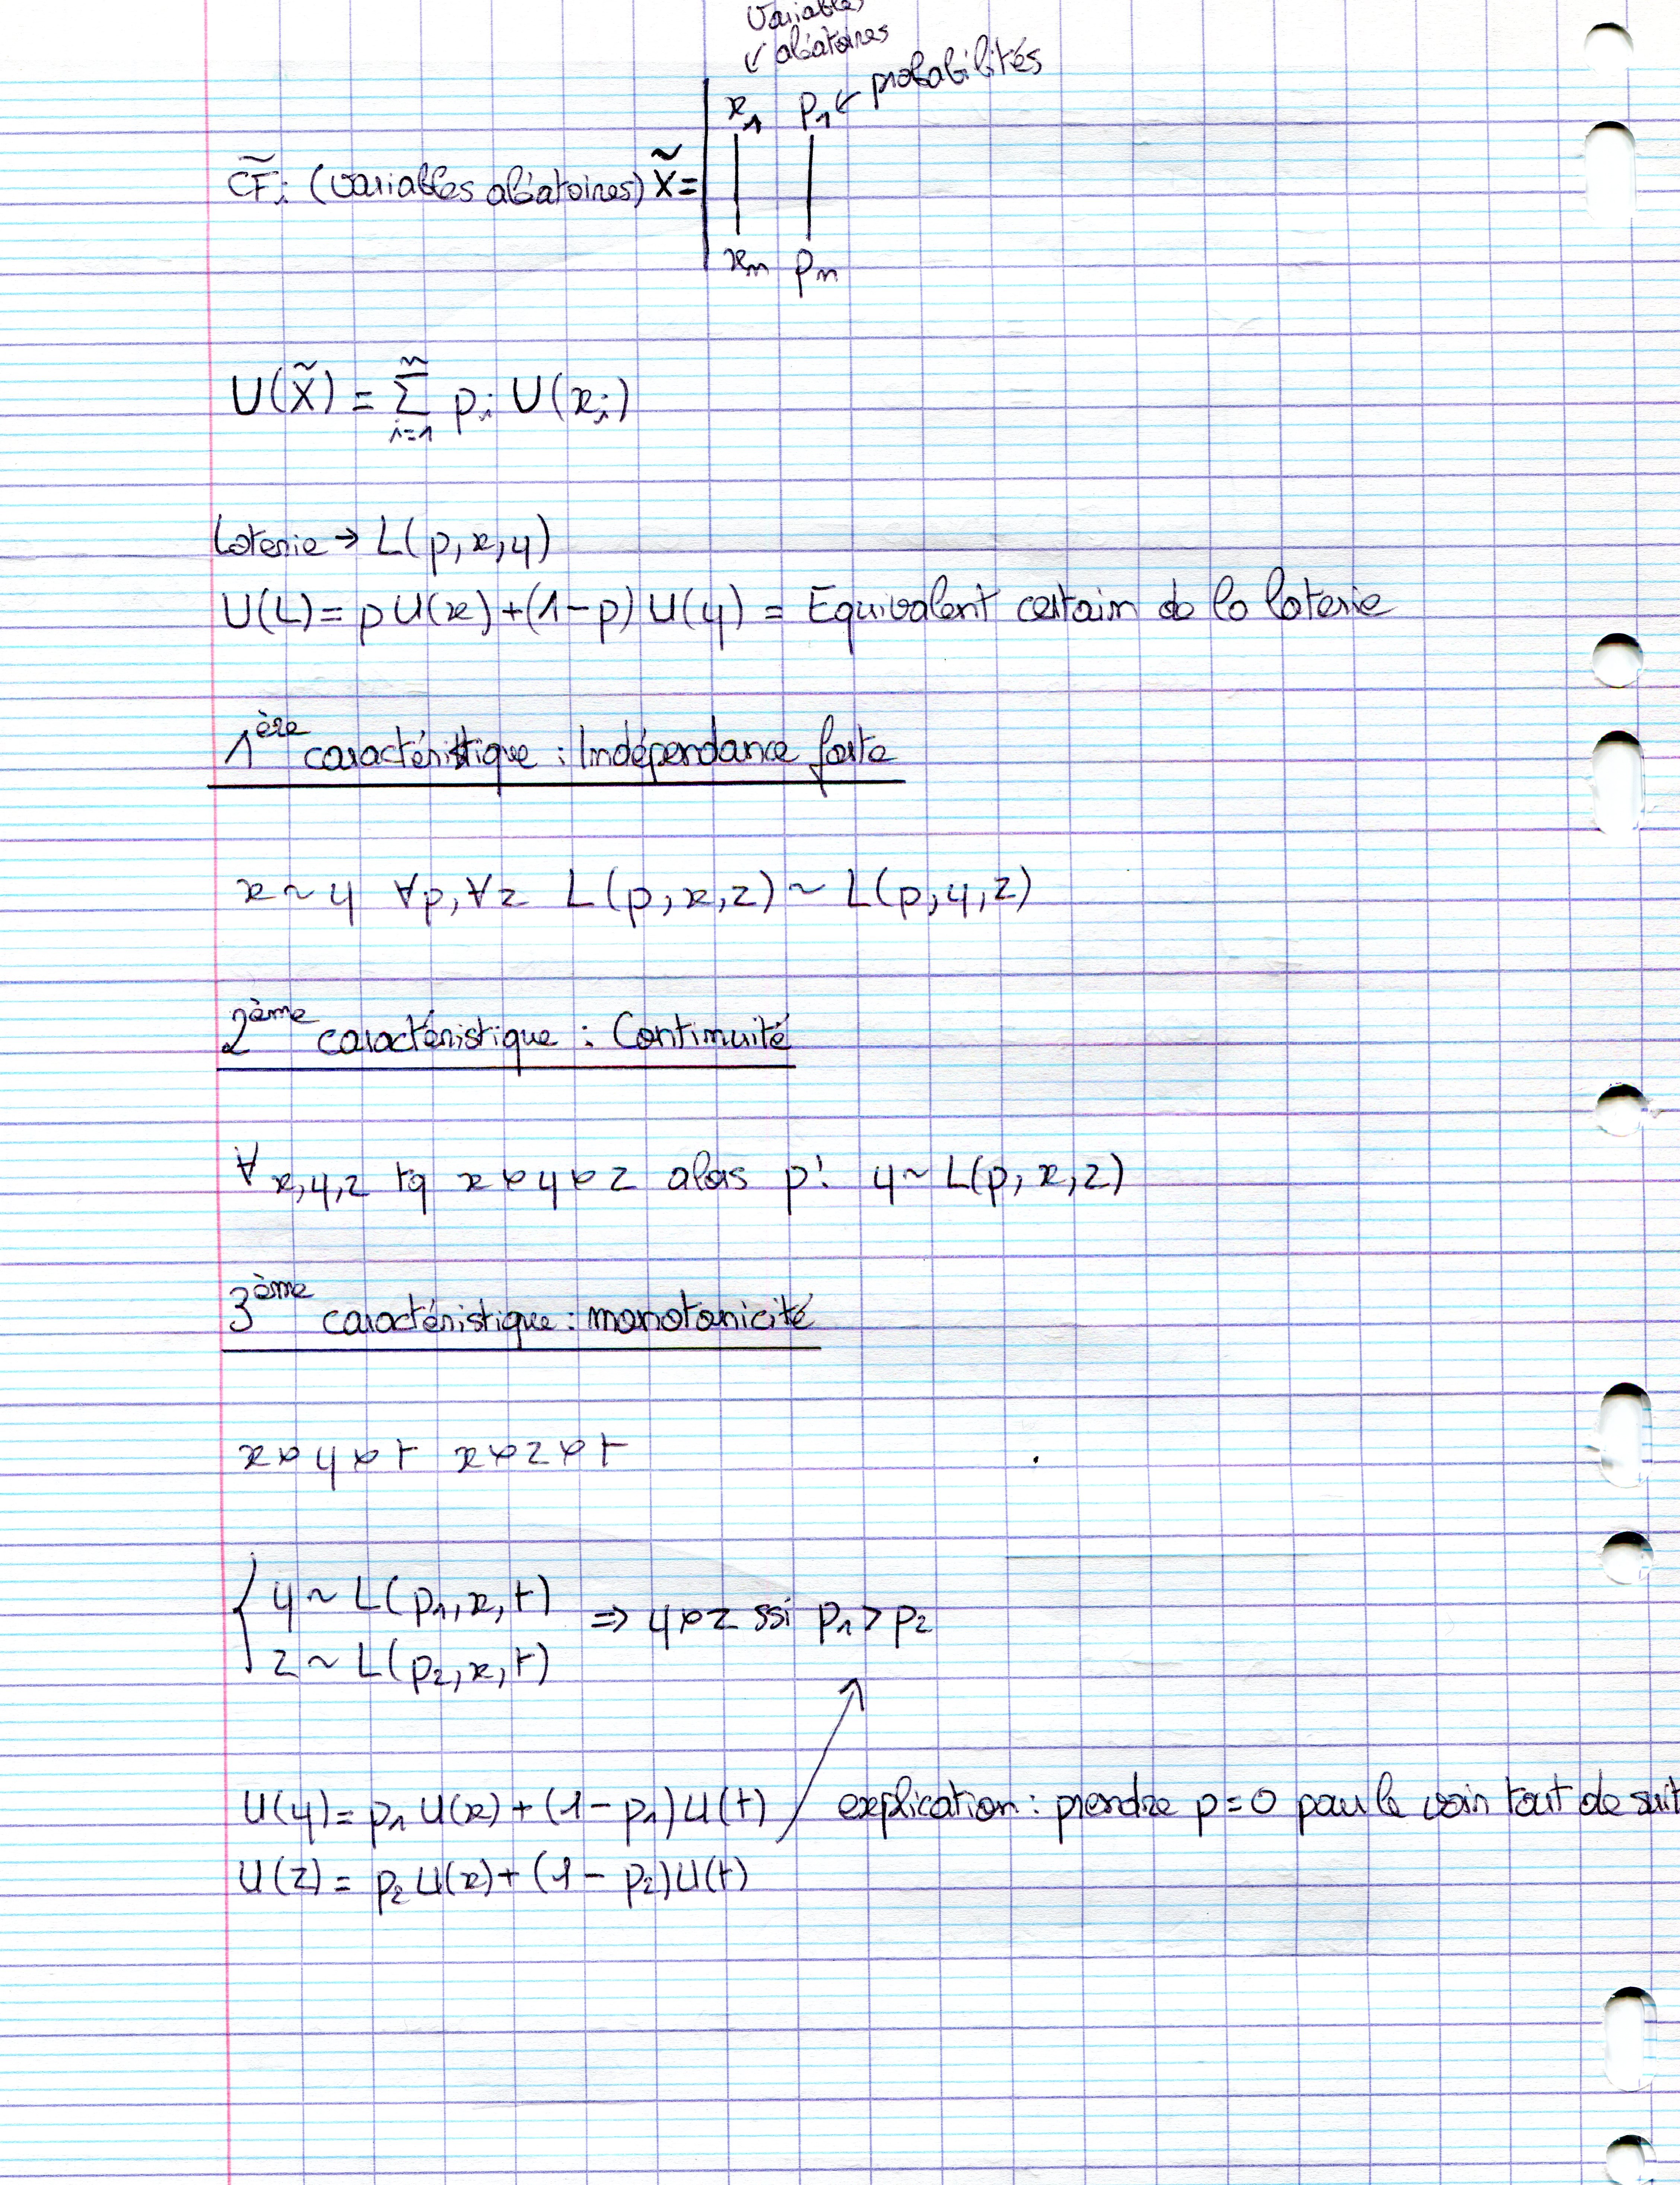 variables
↙ aléatoires
x₁ p₁ ← probabilités
C̃Fᵢ (variables aléatoires) X̃ =
xₙ pₙ
U(X̃) = Σⁿᵢ₌₁ pᵢ U(xᵢ)
Loterie → L(p, x, y)
U(L) = p U(x) + (1-p) U(y) = Equivalent certain de la loterie
1ère caractéristique : Indépendance forte
x ~ y ∀p, ∀z L(p, x, z) ~ L(p, y, z)
2ème caractéristique : Continuité
∀ x,y,z tq x ≻ y ≻ z alors p! y ~ L(p, x, z)
3ème caractéristique : monotonicité
x ≻ y ≻ t x ≻ z ≻ t
{ y ~ L(p₁, x, t) ⇒ y ≻ z ssi p₁ > p₂
z ~ L(p₂, x, t)
U(y) = p₁ U(x) + (1-p₁) U(t) explication : prendre p=0 pour le voir tout de suit
U(z) = p₂ U(x) + (1-p₂) U(t)